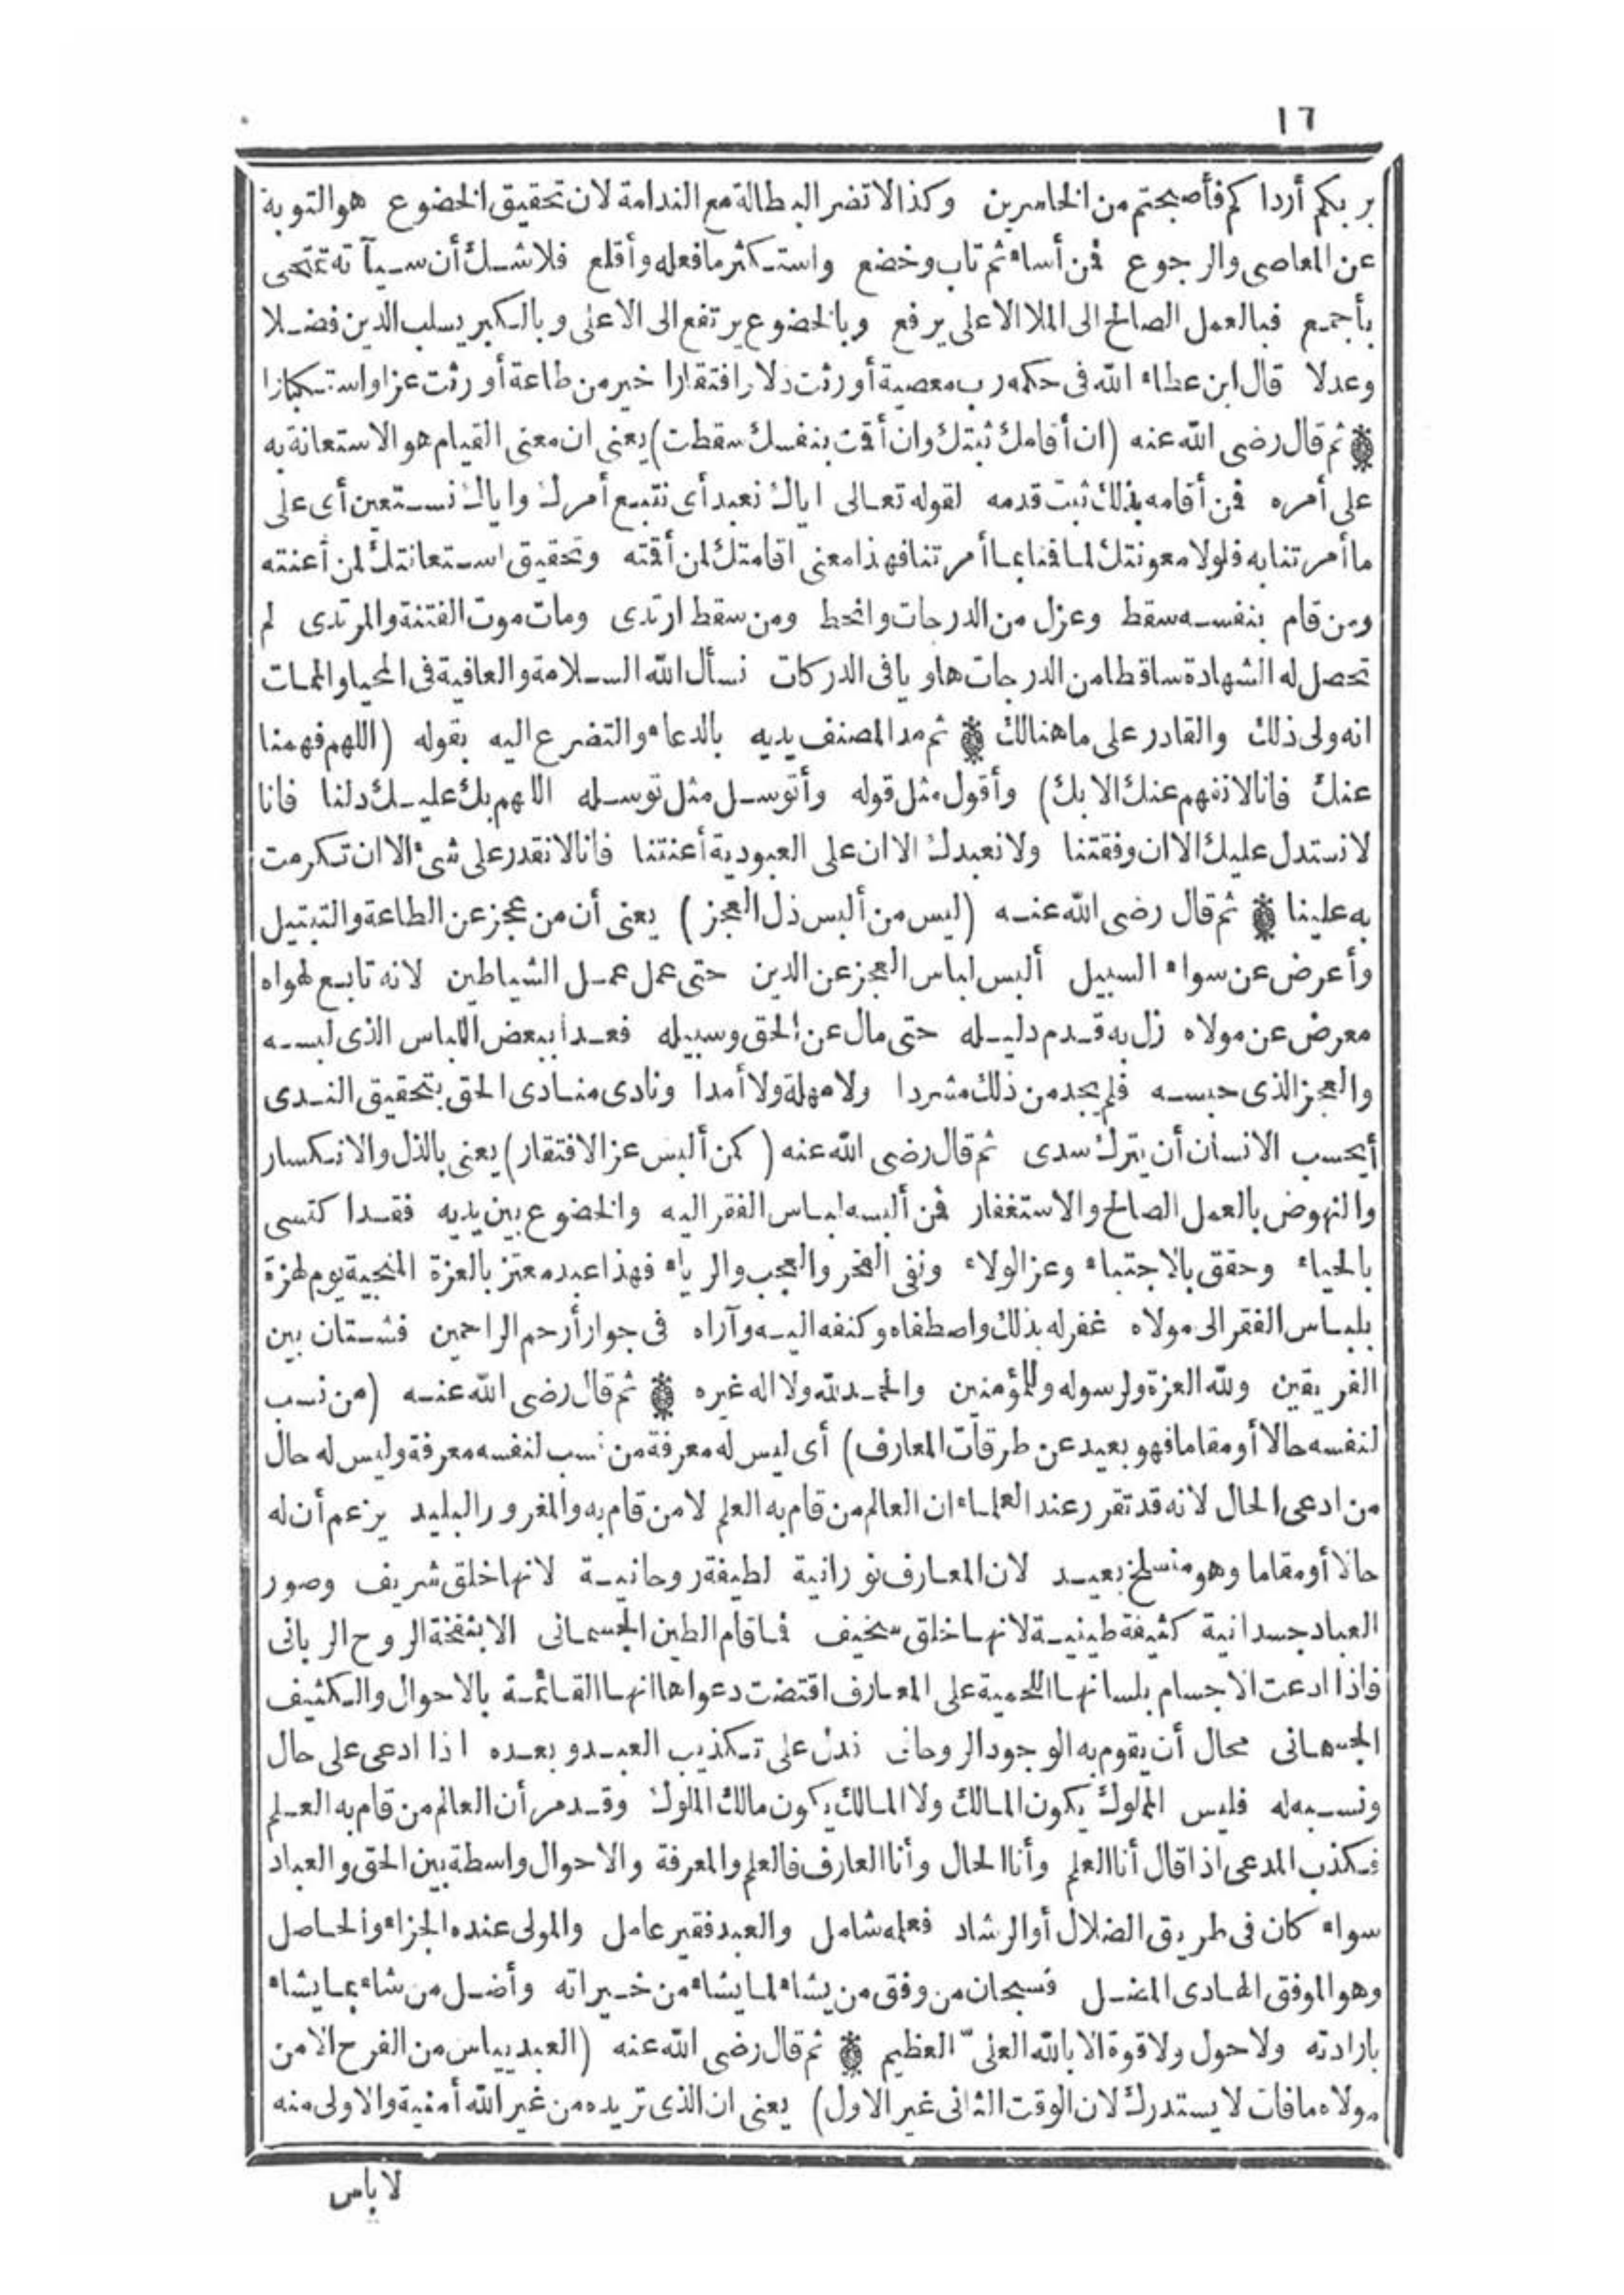 ١٦
بربكم أرداكم فأصبحتم من الخاسرين وكذا لا تضر البطالة مع الندامة لان تحقيق الخضوع هو التوبة
عن المعاصى والرجوع فمن أساء ثم تاب وخضع واستكثر ما فعله وأقلع فلا شك أن سيآته تمتحى
بأجمع فبالعمل الصالح الى الملا الاعلى يرفع وبالخضوع يرتفع الى الاعلى وبالكبر يسلب الدين فضلا
وعدلا قال ابن عطاء الله فى حكمه رب معصية أورثت ذلا وافتقارا خير من طاعة أورثت عزا واستكبارا
ثم قال رضى الله عنه (ان أقامك ثبتك وان أقت بنفسك سقطت) يعنى ان معنى القيام هو الاستعانة به
على أمره فمن أقامه بذلك ثبت قدمه لقوله تعالى اياك نعبد أى نتبع أمرك واياك نستعين أى على
ما أمرتنا به فلولا معونتك لما قنا بما أمرتنا فهذا معنى اقامتك لمن أقته وتحقيق استعانتك لمن أعنته
ومن قام بنفسه سقط وعزل من الدرجات وانحط ومن سقط ارتدى ومات موت الفتنة والمرتدى لم
تحصل له الشهادة ساقطا من الدرجات هاويا فى الدركات نسأل الله السلامة والعافية فى المحيا والممات
انه ولى ذلك والقادر على ما هنالك ثم مد المصنف يديه بالدعاء والتضرع اليه بقوله (اللهم فهمنا
عنك فانا لا نفهم عنك الا بك) وأقول مثل قوله وأتوسل مثل توسله اللهم بك عليك دلنا فانا
لا نستدل عليك الا ان وفقتنا ولا نعبدك الا ان على العبودية أعنتنا فانا لا نقدر على شئ الا ان تكرمت
به علينا ثم قال رضى الله عنه (ليس من ألبس ذل العجز) يعنى أن من عجز عن الطاعة والتبتيل
وأعرض عن سواء السبيل ألبس لباس العجز عن الدين حتى عمل عمل الشياطين لانه تابع لهواه
معرض عن مولاه زل به قدم دليله حتى مال عن الحق وسبيله فغدا ببعض اللباس الذى لبسه
والعجز الذى حبسه فلم يجد من ذلك مشردا ولا مهلة ولا أمدا ونادى منادى الحق بتحقيق الندى
أيحسب الانسان أن يترك سدى ثم قال رضى الله عنه (كمن ألبس عز الافتقار) يعنى بالذل والانكسار
والنهوض بالعمل الصالح والاستغفار فمن ألبسه لباس الفقر اليه والخضوع بين يديه فقد اكتسى
بالحياء وحقق بالاجتباء وعز الولاء ونفى الفخر والعجب والرياء فهذا عبد معتز بالعزة المنجية يوم لهزة
بلباس الفقر الى مولاه غفر له بذلك واصطفاه وكنفه اليه وآراه فى جوار أرحم الراحمين فشتان بين
الفريقين ولله العزة ولرسوله وللمؤمنين والحمد لله ولا اله غيره ثم قال رضى الله عنه (من نسب
لنفسه حالا أو مقاما فهو بعيد عن طرقات المعارف) أى ليس له معرفة من نسب لنفسه معرفة وليس له حال
من ادعى الحال لانه قد تقرر عند العلماء ان العالم من قام به العلم لا من قام به والمغرور البليد يزعم أن له
حالا أو مقاما وهو منسلخ بعيد لان المعارف نورانية لطيفة روحانية لانها خلق شريف وصور
العباد جسدانية كثيفة طينية لانها خلق سخيف فاقام الطين الجسمانى الا بنفخة الروح الربانى
فاذا ادعت الاجسام بلسانها اللحمية على المعارف اقتضت دعواها انها القائمة بالاحوال والكثيف
الجسمانى محال أن يقوم به الوجود الروحانى ندل على تكذيب العبد وبعده اذا ادعى على حال
ونسبه له فليس المملوك يكون المالك ولا المالك يكون مالك الملوك وقد مر أن العالم من قام به العلم
فكذب المدعى اذا قال أنا العلم وأنا الحال وأنا العارف فالعلم والمعرفة والاحوال واسطة بين الحق والعباد
سواء كان فى طريق الضلال أو الرشاد فعلمه شامل والعبد فقير عامل والمولى عنده الجزاء والحاصل
وهو الموفق الهادى المضل فسبحان من وفق من يشاء لما يشاء من خيراته وأضل من شاء بما يشاء
بارادته ولا حول ولا قوة الا بالله العلىّ العظيم ثم قال رضى الله عنه (العبد ييأس من الفرح الا من
مولاه ما فات لا يستدرك لان الوقت الثانى غير الاول) يعنى ان الذى تريده من غير الله أمنية والاولى منه
لاباس